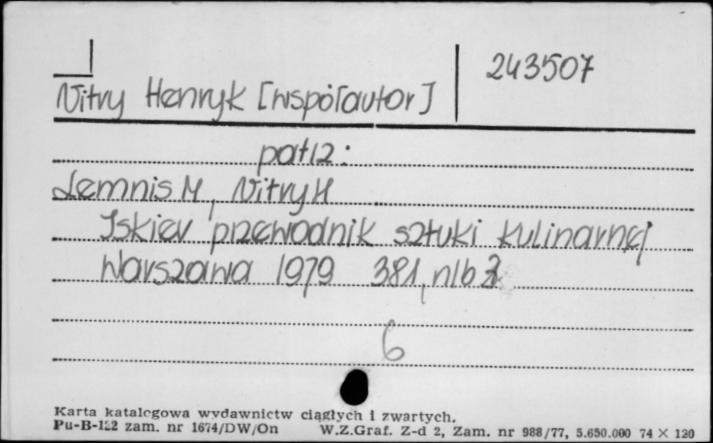 243507
Nitry Henryk [współautor]
patrz:
Lemnis M, Nitry H
Iskier przewodnik sztuki kulinarnej
Warszawa 1979 381, nlb 3
6
Karta katalogowa wydawnictw ciągłych i zwartych.
Pu-B-122 zam. nr 1674/DW/On W.Z.Graf. Z-d 2, Zam. nr 988/77, 5.650.000 74 × 120